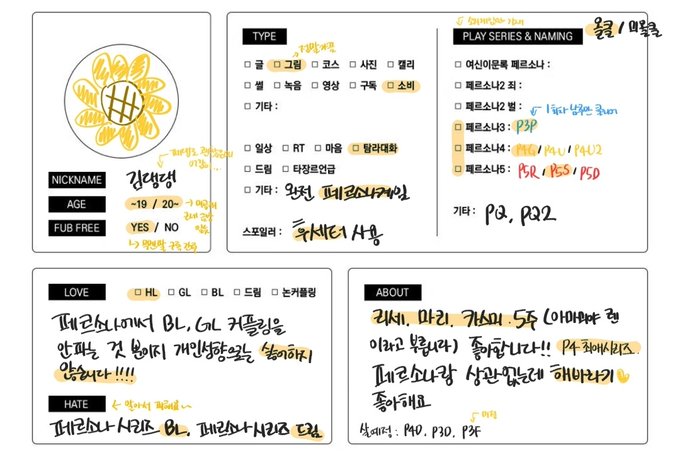 NICKNAME 김댕댕
AGE ~19 / 20~
FUB FREE YES / NO
TYPE
□ 글 □ 그림 □ 코스 □ 사진 □ 캘리
□ 썰 □ 녹음 □ 영상 □ 구독 □ 소비
□ 기타 :
□ 일상 □ RT □ 마음 □ 탐라대화
□ 드림 □ 타장르언급
□ 기타 : 완전 페르소나계임
스포일러 : 후세터 사용
PLAY SERIES & NAMING 올클 / 미올클
□ 여신이문록 페르소나 :
□ 페르소나2 죄 :
□ 페르소나2 벌 :
□ 페르소나3 : P3P
□ 페르소나4 : P4G / P4U / P4U2
□ 페르소나5 : P5R / P5S / P5D
기타 : PQ, PQ2
LOVE □ HL □ GL □ BL □ 드림 □ 논커플링
페르소나에서 BL, GL 커플링을
안파는 것 뿐이지 개인성향으로는 싫어하지
않습니다 !!!!
HATE
페르소나 시리즈 BL, 페르소나 시리즈 드림
ABOUT
리세, 마리, 카스미, 5주 (아마미야 렌
이라고 부릅니다) 좋아합니다!! P4 최애시리즈.
페르소나랑 상관없는데 해바라기
좋아해요
살예정 : P4D, P3D, P3F